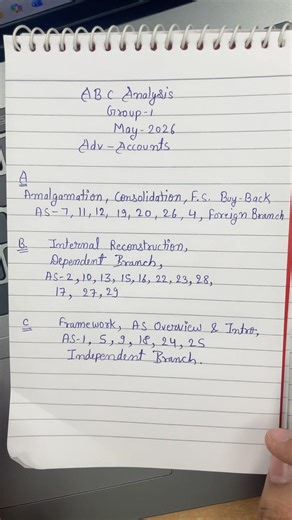 ABC Analysis
Group-1
May-2026
Adv-Accounts
A
Amalgamation, Consolidation, F.S. Buy-Back
AS-7, 11, 12, 19, 20, 26, 4, Foreign Branch
B Internal Reconstruction,
Dependent Branch,
AS-2, 10, 13, 15, 16, 22, 23, 28,
17, 27, 29
C Framework, AS Overview & Intro,
AS-1, 5, 9, 18, 24, 25
Independent Branch.